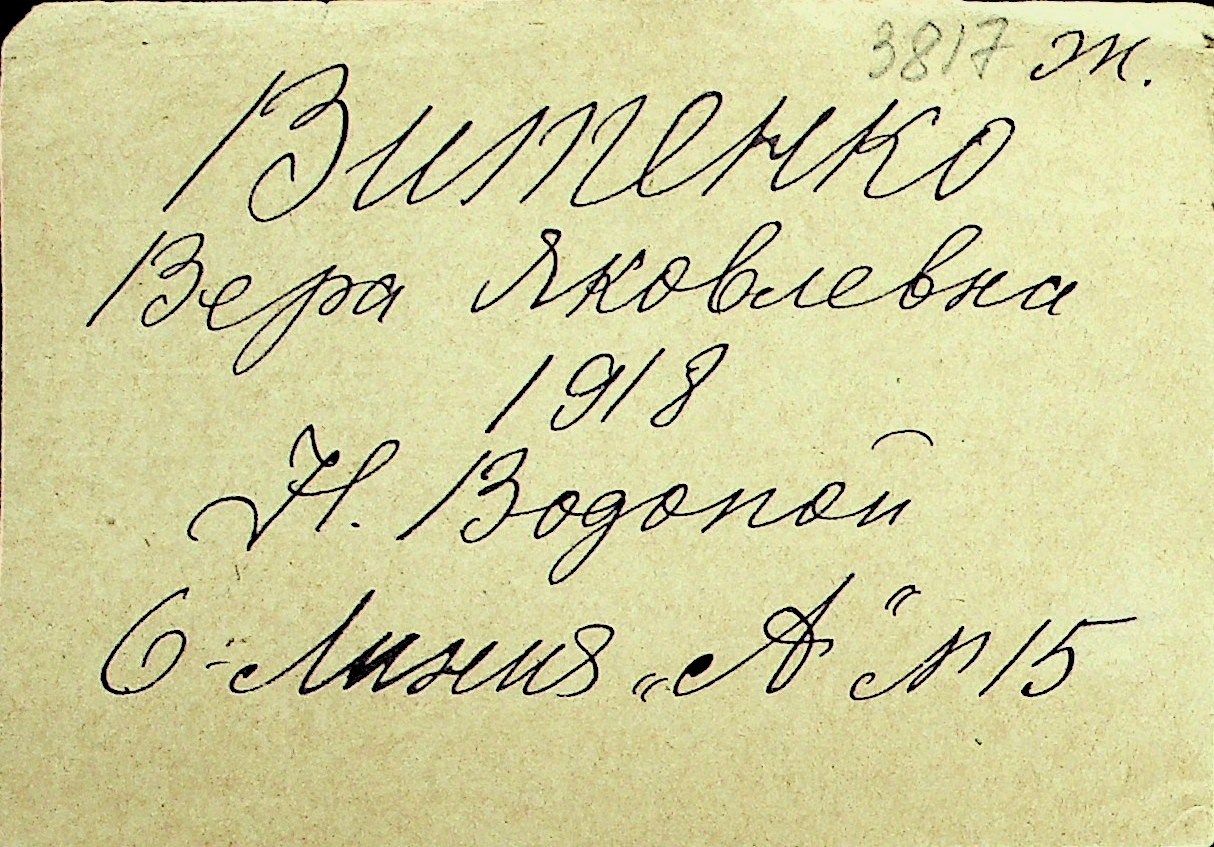 3817 ж.
Витенко
Вера Яковлевна
1918
Н. Водопой
6-Линия „А“ № 15